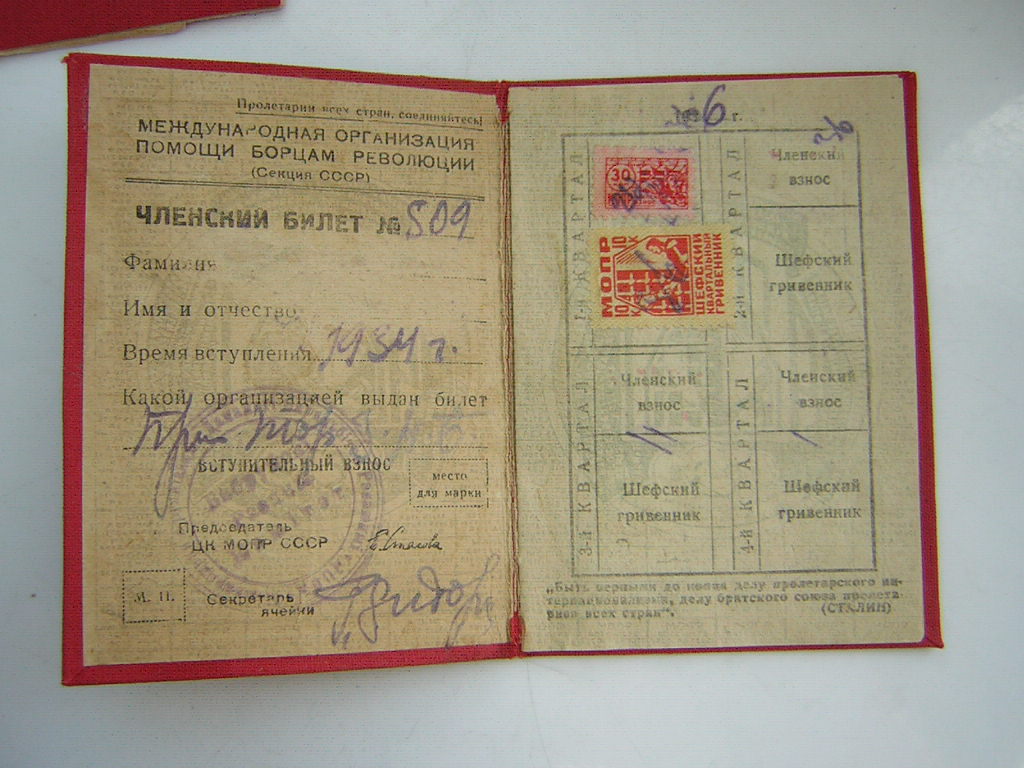 Пролетарии всех стран, соединяйтесь!
МЕЖДУНАРОДНАЯ ОРГАНИЗАЦИЯ
ПОМОЩИ БОРЦАМ РЕВОЛЮЦИИ
(Секция СССР)
ЧЛЕНСКИЙ БИЛЕТ № 509
Фамилия
Имя и отчество
Время вступления 1934 г.
Какой организацией выдан билет
ВСТУПИТЕЛЬНЫЙ ВЗНОС
место
для марки
Председатель
ЦК МОПР СССР
Е. Стасова
М. П.
Секретарь
ячейки
6 г.
1-й КВАРТАЛ
30
МОПР
10 КОП 10
ШЕФСКИЙ
КВАРТАЛЬНЫЙ
ГРИВЕННИК
2-й КВАРТАЛ
Членский
взнос
Шефский
гривенник
3-й КВАРТАЛ
Членский
взнос
Шефский
гривенник
4-й КВАРТАЛ
Членский
взнос
Шефский
гривенник
„Быть верными до конца делу пролетарского ин-
тернационализма, делу братского союза пролета-
риев всех стран".
(СТАЛИН)